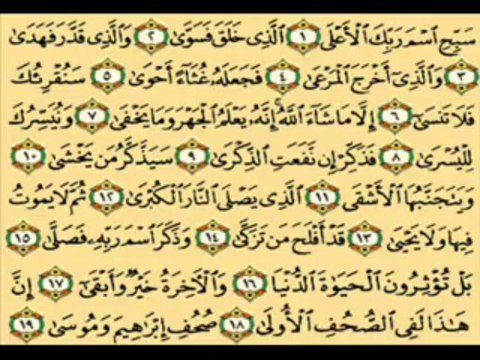 سَبِّحِ ٱسْمَ رَبِّكَ ٱلْأَعْلَى ١ ٱلَّذِى خَلَقَ فَسَوَّىٰ ٢ وَٱلَّذِى قَدَّرَ فَهَدَىٰ
٣ وَٱلَّذِىٓ أَخْرَجَ ٱلْمَرْعَىٰ ٤ فَجَعَلَهُۥ غُثَآءً أَحْوَىٰ ٥ سَنُقْرِئُكَ
فَلَا تَنسَىٰٓ ٦ إِلَّا مَا شَآءَ ٱللَّهُ إِنَّهُۥ يَعْلَمُ ٱلْجَهْرَ وَمَا يَخْفَىٰ ٧ وَنُيَسِّرُكَ
لِلْيُسْرَىٰ ٨ فَذَكِّرْ إِن نَّفَعَتِ ٱلذِّكْرَىٰ ٩ سَيَذَّكَّرُ مَن يَخْشَىٰ ١٠
وَيَتَجَنَّبُهَا ٱلْأَشْقَى ١١ ٱلَّذِى يَصْلَى ٱلنَّارَ ٱلْكُبْرَىٰ ١٢ ثُمَّ لَا يَمُوتُ
فِيهَا وَلَا يَحْيَىٰ ١٣ قَدْ أَفْلَحَ مَن تَزَكَّىٰ ١٤ وَذَكَرَ ٱسْمَ رَبِّهِۦ فَصَلَّىٰ ١٥
بَلْ تُؤْثِرُونَ ٱلْحَيَوٰةَ ٱلدُّنْيَا ١٦ وَٱلْـَٔاخِرَةُ خَيْرٌ وَأَبْقَىٰٓ ١٧ إِنَّ
هَـٰذَا لَفِى ٱلصُّحُفِ ٱلْأُولَىٰ ١٨ صُحُفِ إِبْرَٰهِيمَ وَمُوسَىٰ ١٩